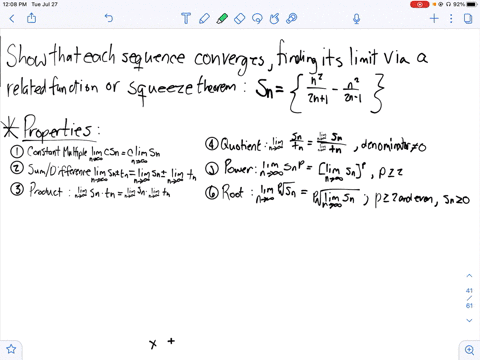 12:08 PM Tue Jul 27
92%
Show that each sequence converges, finding its limit via a
related function or squeeze theorem: Sn = { n²/(2n+1) - n²/(2n-1) }
* Properties:
① Constant Multiple lim n→∞ CSn = C lim n→∞ Sn
② Sum/Difference lim n→∞ Sn ± tn = lim n→∞ Sn ± lim n→∞ tn
③ Product: lim n→∞ Sn · tn = lim n→∞ Sn · lim n→∞ tn
④ Quotient: lim n→∞ Sn/tn = lim n→∞ Sn / lim n→∞ tn, denominator ≠ 0
⑤ Power: lim n→∞ Sn^p = [lim n→∞ Sn]^p, p ≥ 2
⑥ Root: lim n→∞ p√Sn = p√(lim n→∞ Sn); p ≥ 2 and even, Sn ≥ 0
41
/
61
x +